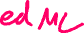 ed ML